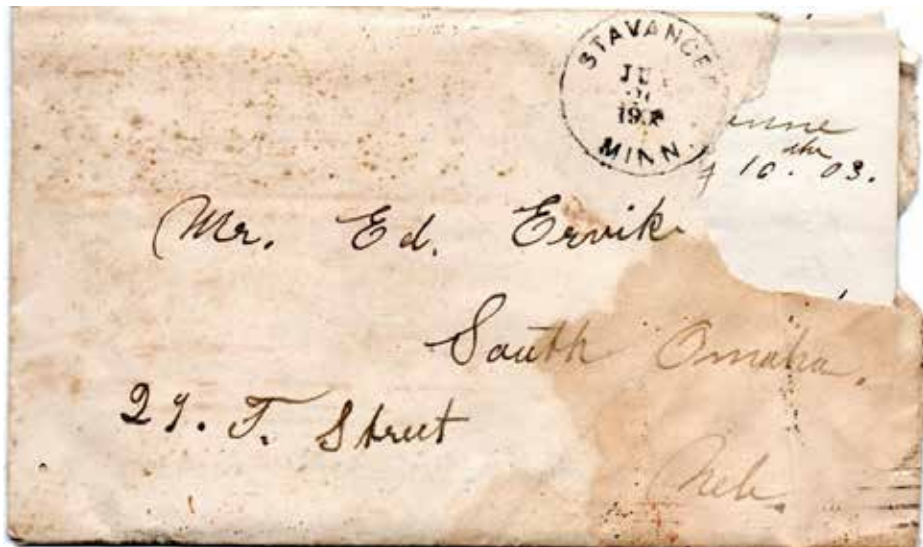 STAVANGER
JU
190
MINN.
10. 03.
Mr. Ed. Ervik
South Omaha.
27. F. Street
Neb.